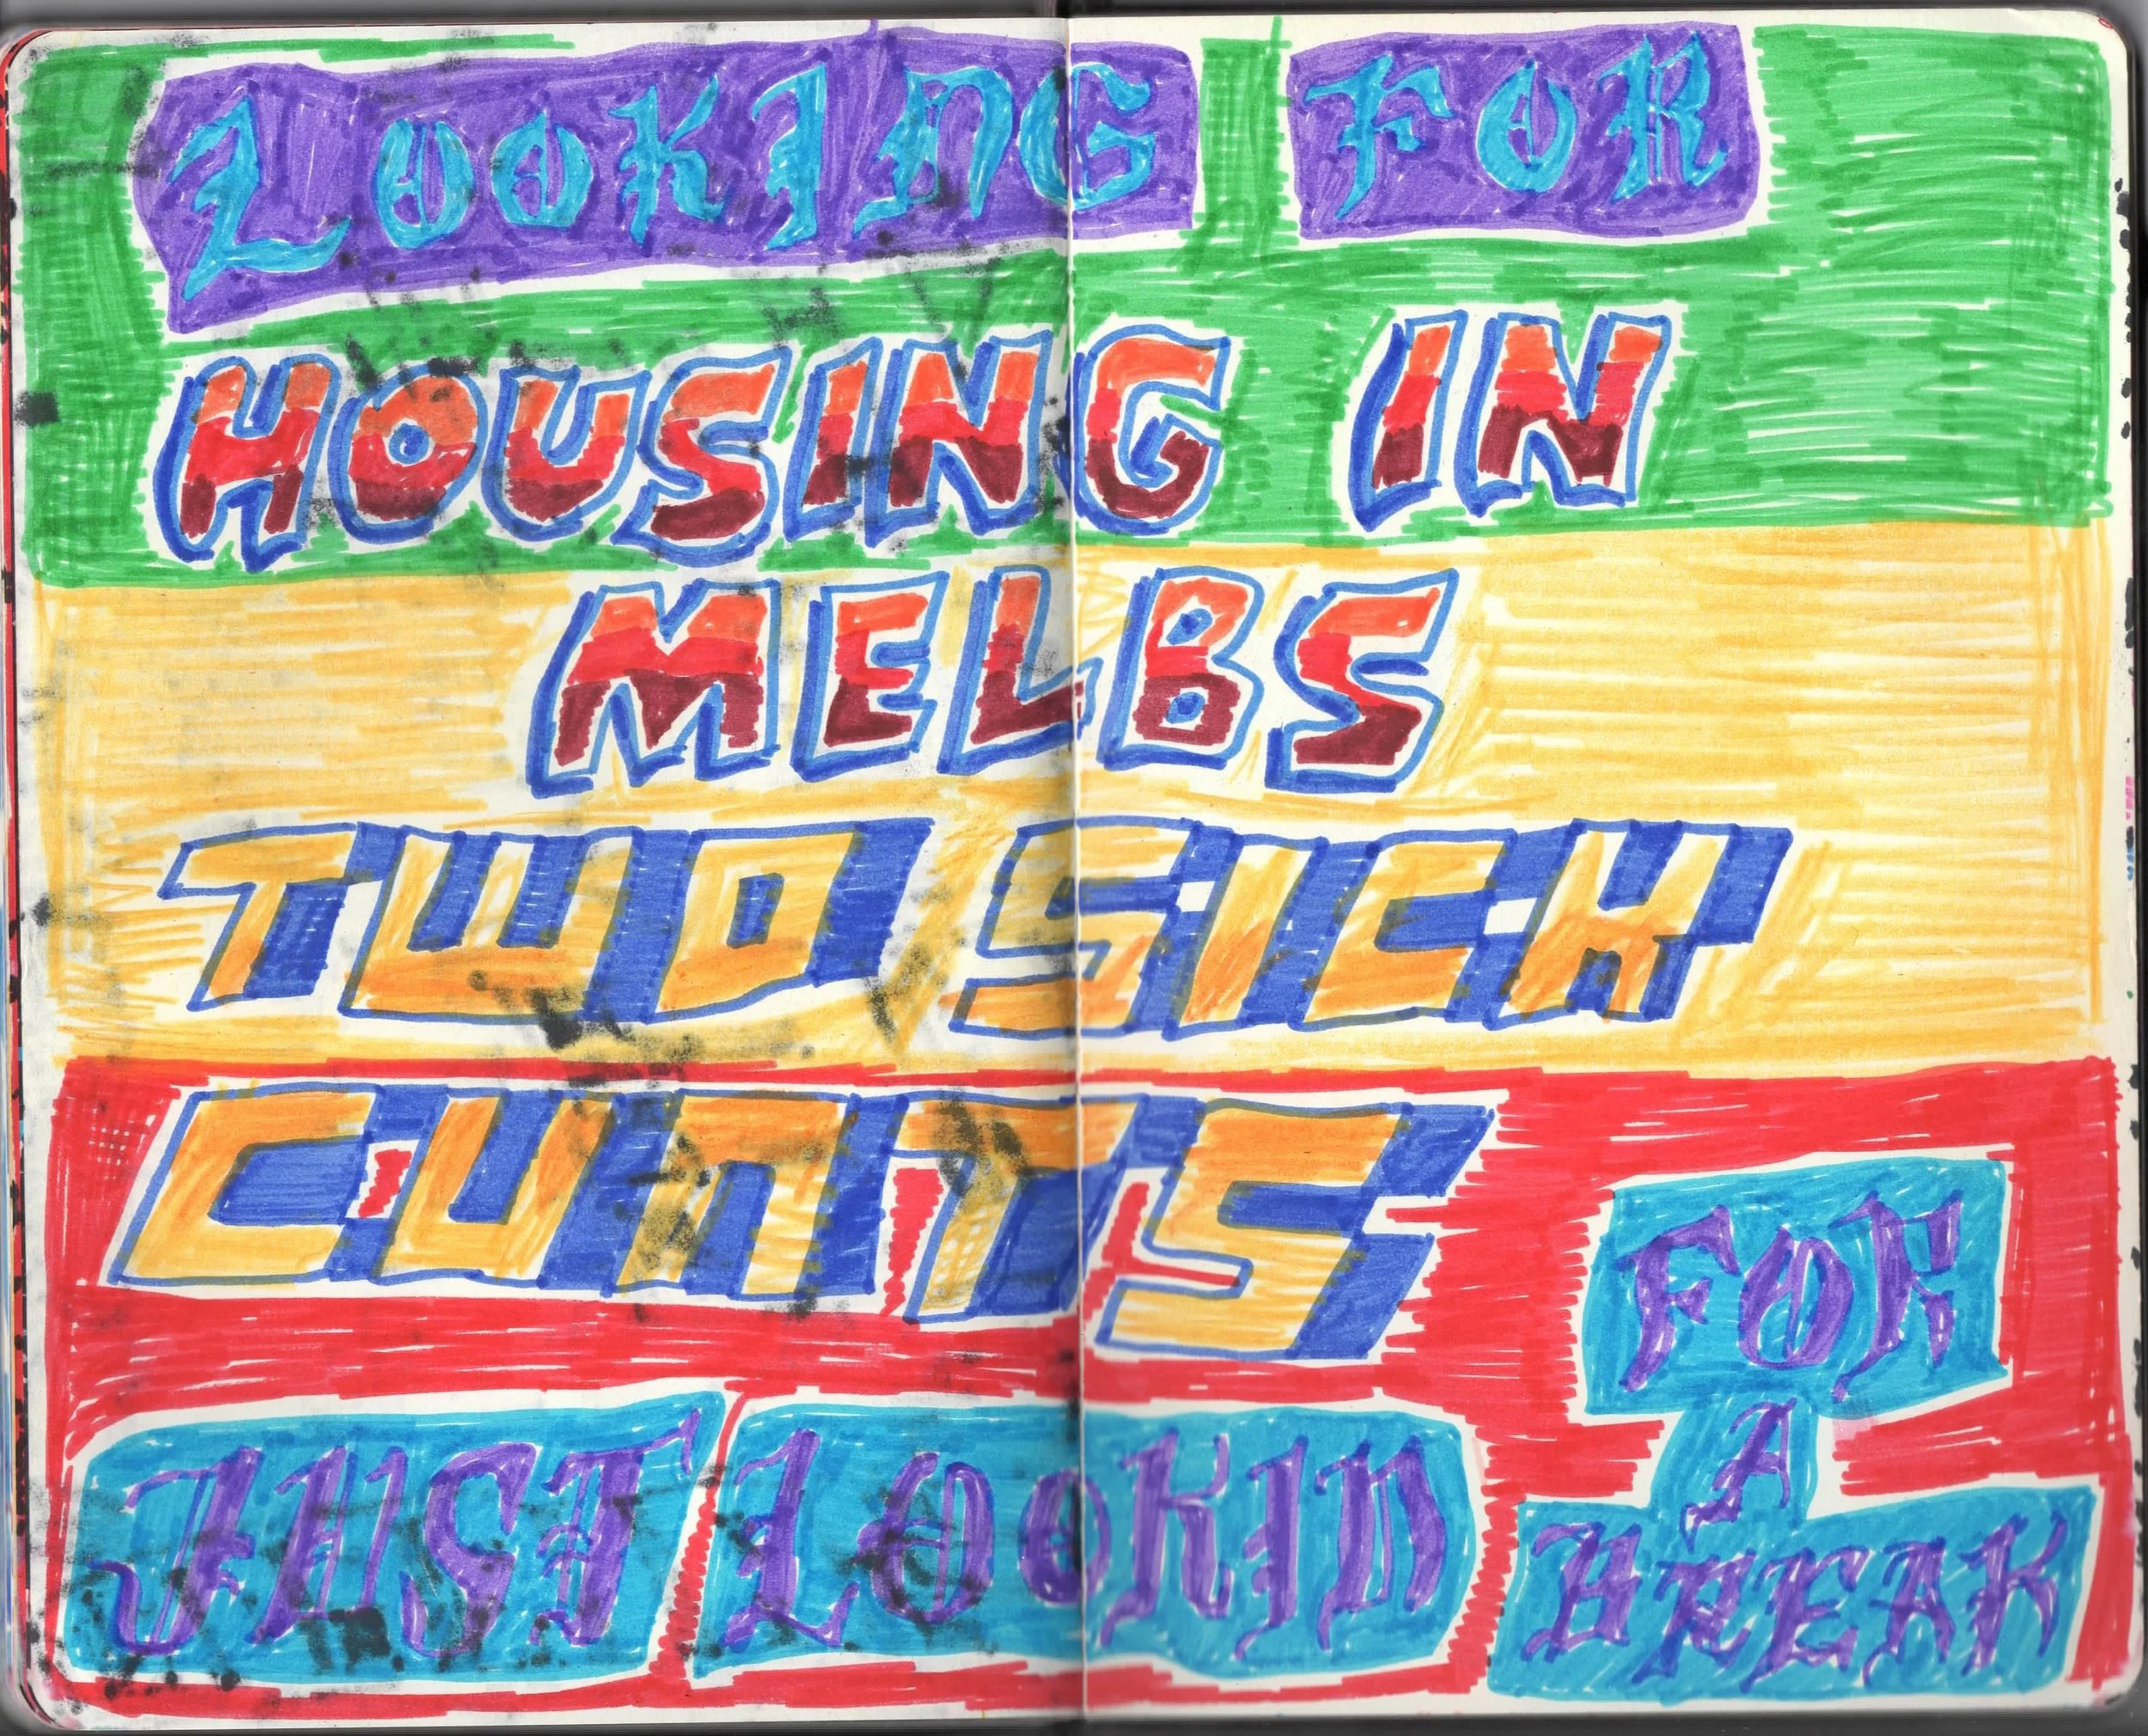 LOOKING FOR
HOUSING IN
MELBS
TWO SICK
CUNTS
JUST LOOKIN
FOR
A
BREAK